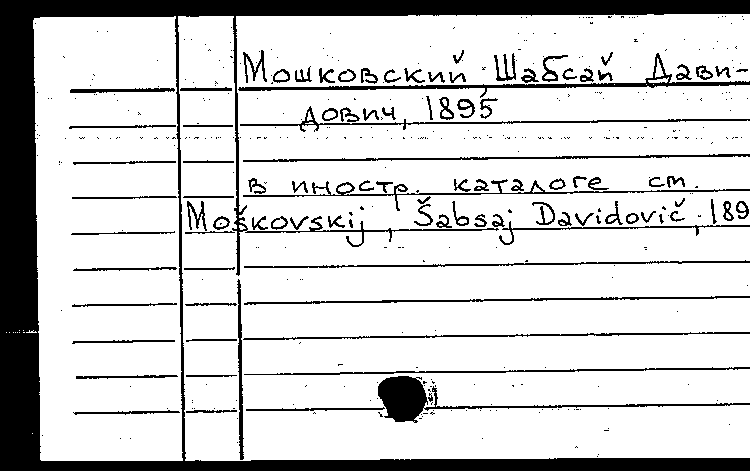 Мошковский, Шабсай Дави-
дович, 1895
в иностр. каталоге см.
Moškovskij, Šabsaj Davidovič, 189